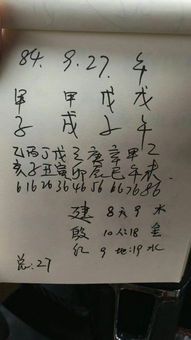 84. 9. 27. 午
甲 甲 戊 戊
子 戌 子 午
乙 丙 丁 戊 己 庚 辛 甲 乙
亥 子 丑 寅 卯 辰 巳 午 未
6 16 26 36 46 56 66 76 86
建 8 天 9 水
殷 10 人 18 金
9 地:19 水
总:27